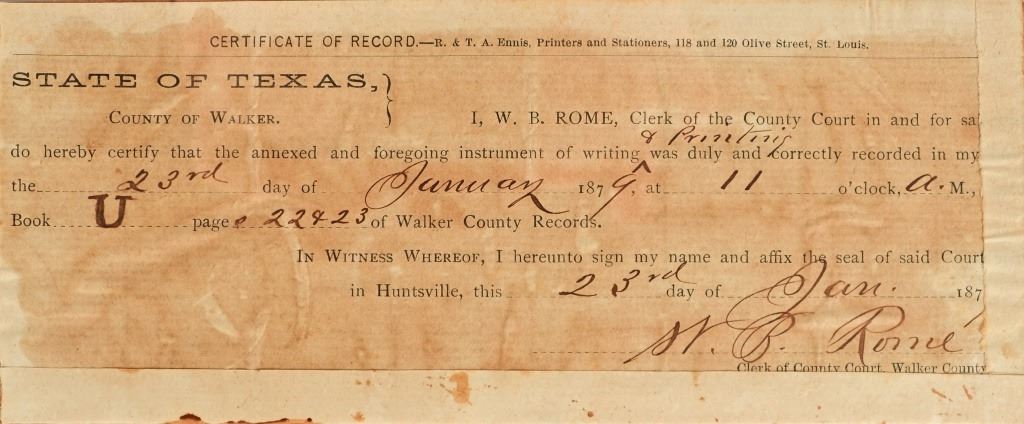 CERTIFICATE OF RECORD.—R. & T. A. Ennis, Printers and Stationers, 118 and 120 Olive Street, St. Louis.
STATE OF TEXAS,}
COUNTY OF WALKER.
I, W. B. ROME, Clerk of the County Court in and for sa
& Printing
do hereby certify that the annexed and foregoing instrument of writing ^ was duly and correctly recorded in my
the 23rd day of January 1879. at 11 o'clock, a. M.,
Book U pages 22&23 of Walker County Records.
IN WITNESS WHEREOF, I hereunto sign my name and affix the seal of said Court
in Huntsville, this 23rd day of Jan. 187
W. B. Rome
Clerk of County Court, Walker County